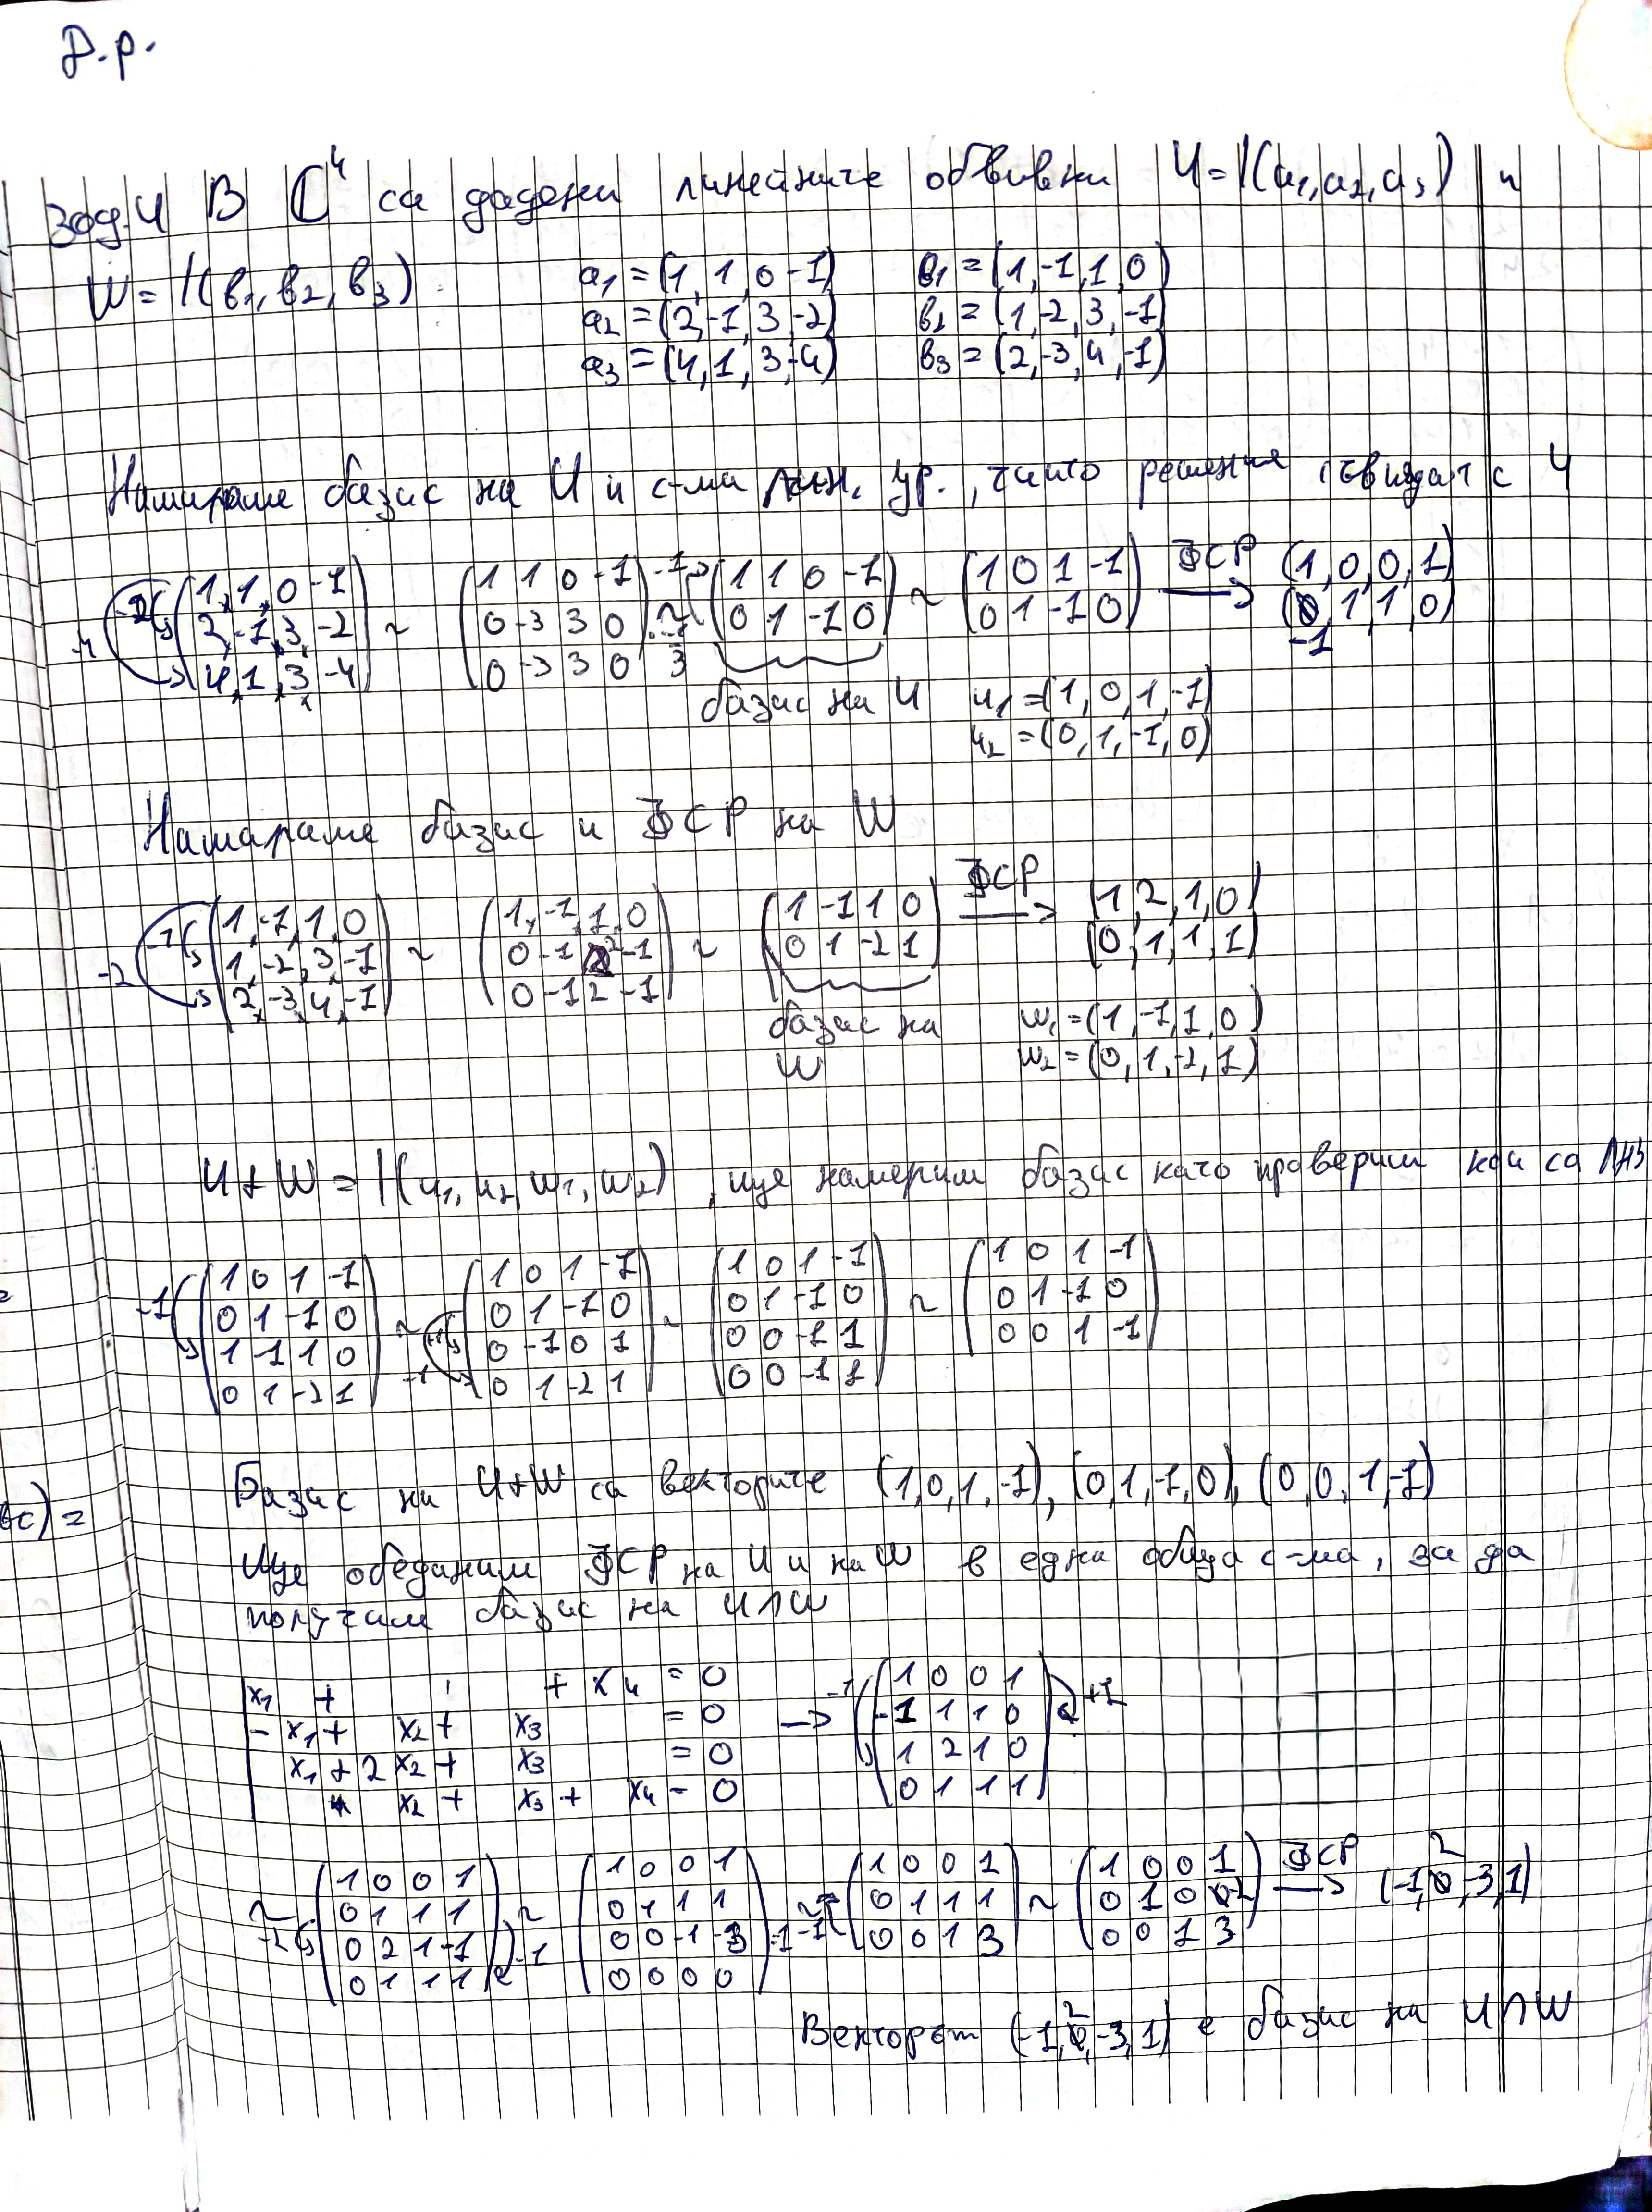 Д.р.
Зад.4 В ℂ⁴ са дадени линейните обвивки U = l(a₁, a₂, a₃) и
W = l(b₁, b₂, b₃)
a₁ = (1, 1, 0 -1) b₁ = (1, -1, 1, 0)
a₂ = (2, -1, 3, -2) b₂ = (1, -2, 3, -1)
a₃ = (4, 1, 3, -4) b₃ = (2, -3, 4, -1)
Намираме базис на U и с-ма лин. ур., чиито решения съвпадат с U
-2 -4 (1, 1, 0 -1) ~ (1 1 0 -1) ~ (1 1 0 -1) ~ (1 0 1 -1) ФСР → (1, 0, 0, 1)
(2, -1, 3, -2) (0 -3 3 0) (0 1 -1 0) (0 1 -1 0) (-1, 1, 1, 0)
(4, 1, 3, -4) (0 -3 3 0)
базис на U u₁ = (1, 0, 1, -1)
u₂ = (0, 1, -1, 0)
Намираме базис и ФСР на W
-1 -2 (1, -1, 1, 0) ~ (1, -1, 1, 0) ~ (1 -1 1 0) ФСР → (1, 2, 1, 0)
(1, -2, 3, -1) (0 -1 2 -1) (0 1 -2 1) (0, 1, 1, 1)
(2, -3, 4, -1) (0 -1 2 -1)
базис на w₁ = (1, -1, 1, 0)
W w₂ = (0, 1, -2, 1)
U + W = l(u₁, u₂, w₁, w₂), ще намерим базис като проверим кои са ЛНЗ
-1 (1 0 1 -1) ~ (1 0 1 -1) ~ (1 0 1 -1) ~ (1 0 1 -1)
(0 1 -1 0) (0 1 -1 0) (0 1 -1 0) (0 1 -1 0)
(1 -1 1 0) (0 -1 0 1) (0 0 -1 1) (0 0 1 -1)
(0 1 -2 1) (0 1 -2 1) (0 0 -1 1)
Базис на U+W са векторите (1, 0, 1, -1), (0, 1, -1, 0), (0, 0, 1, -1)
вс) =
Ще обединим ФСР на U и на W в една обща с-ма, за да
получим базис на U∩W
x₁ + + x₄ = 0 → -1 (1 0 0 1) +1
- x₁ + x₂ + x₃ = 0 (-1 1 1 0)
x₁ + 2x₂ + x₃ = 0 (1 2 1 0)
x₂ + x₃ + x₄ = 0 (0 1 1 1)
~ (1 0 0 1) ~ (1 0 0 1) ~ (1 0 0 1) ~ (1 0 0 1) ФСР → (-1, 2, -3, 1)
(0 1 1 1) (0 1 1 1) (0 1 1 1) (0 1 0 -2)
-2 (0 2 1 -1) -1 (0 0 -1 -3) .-1 -1 (0 0 1 3) (0 0 1 3)
(0 1 1 1) (0 0 0 0)
Векторът (-1, 2, -3, 1) е базис на U∩W